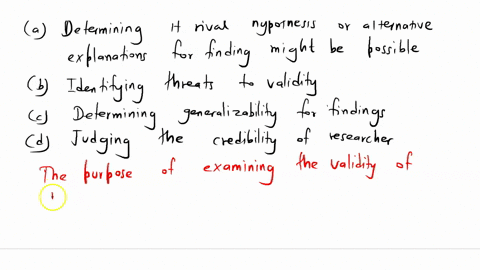 (a) Determining H rival hypothesis or alternative
explanations for finding might be possible
(b) Identifying threats to validity
(c) Determining generalizability for findings
(d) Judging the credibility of researcher
The purpose of examining the validity of